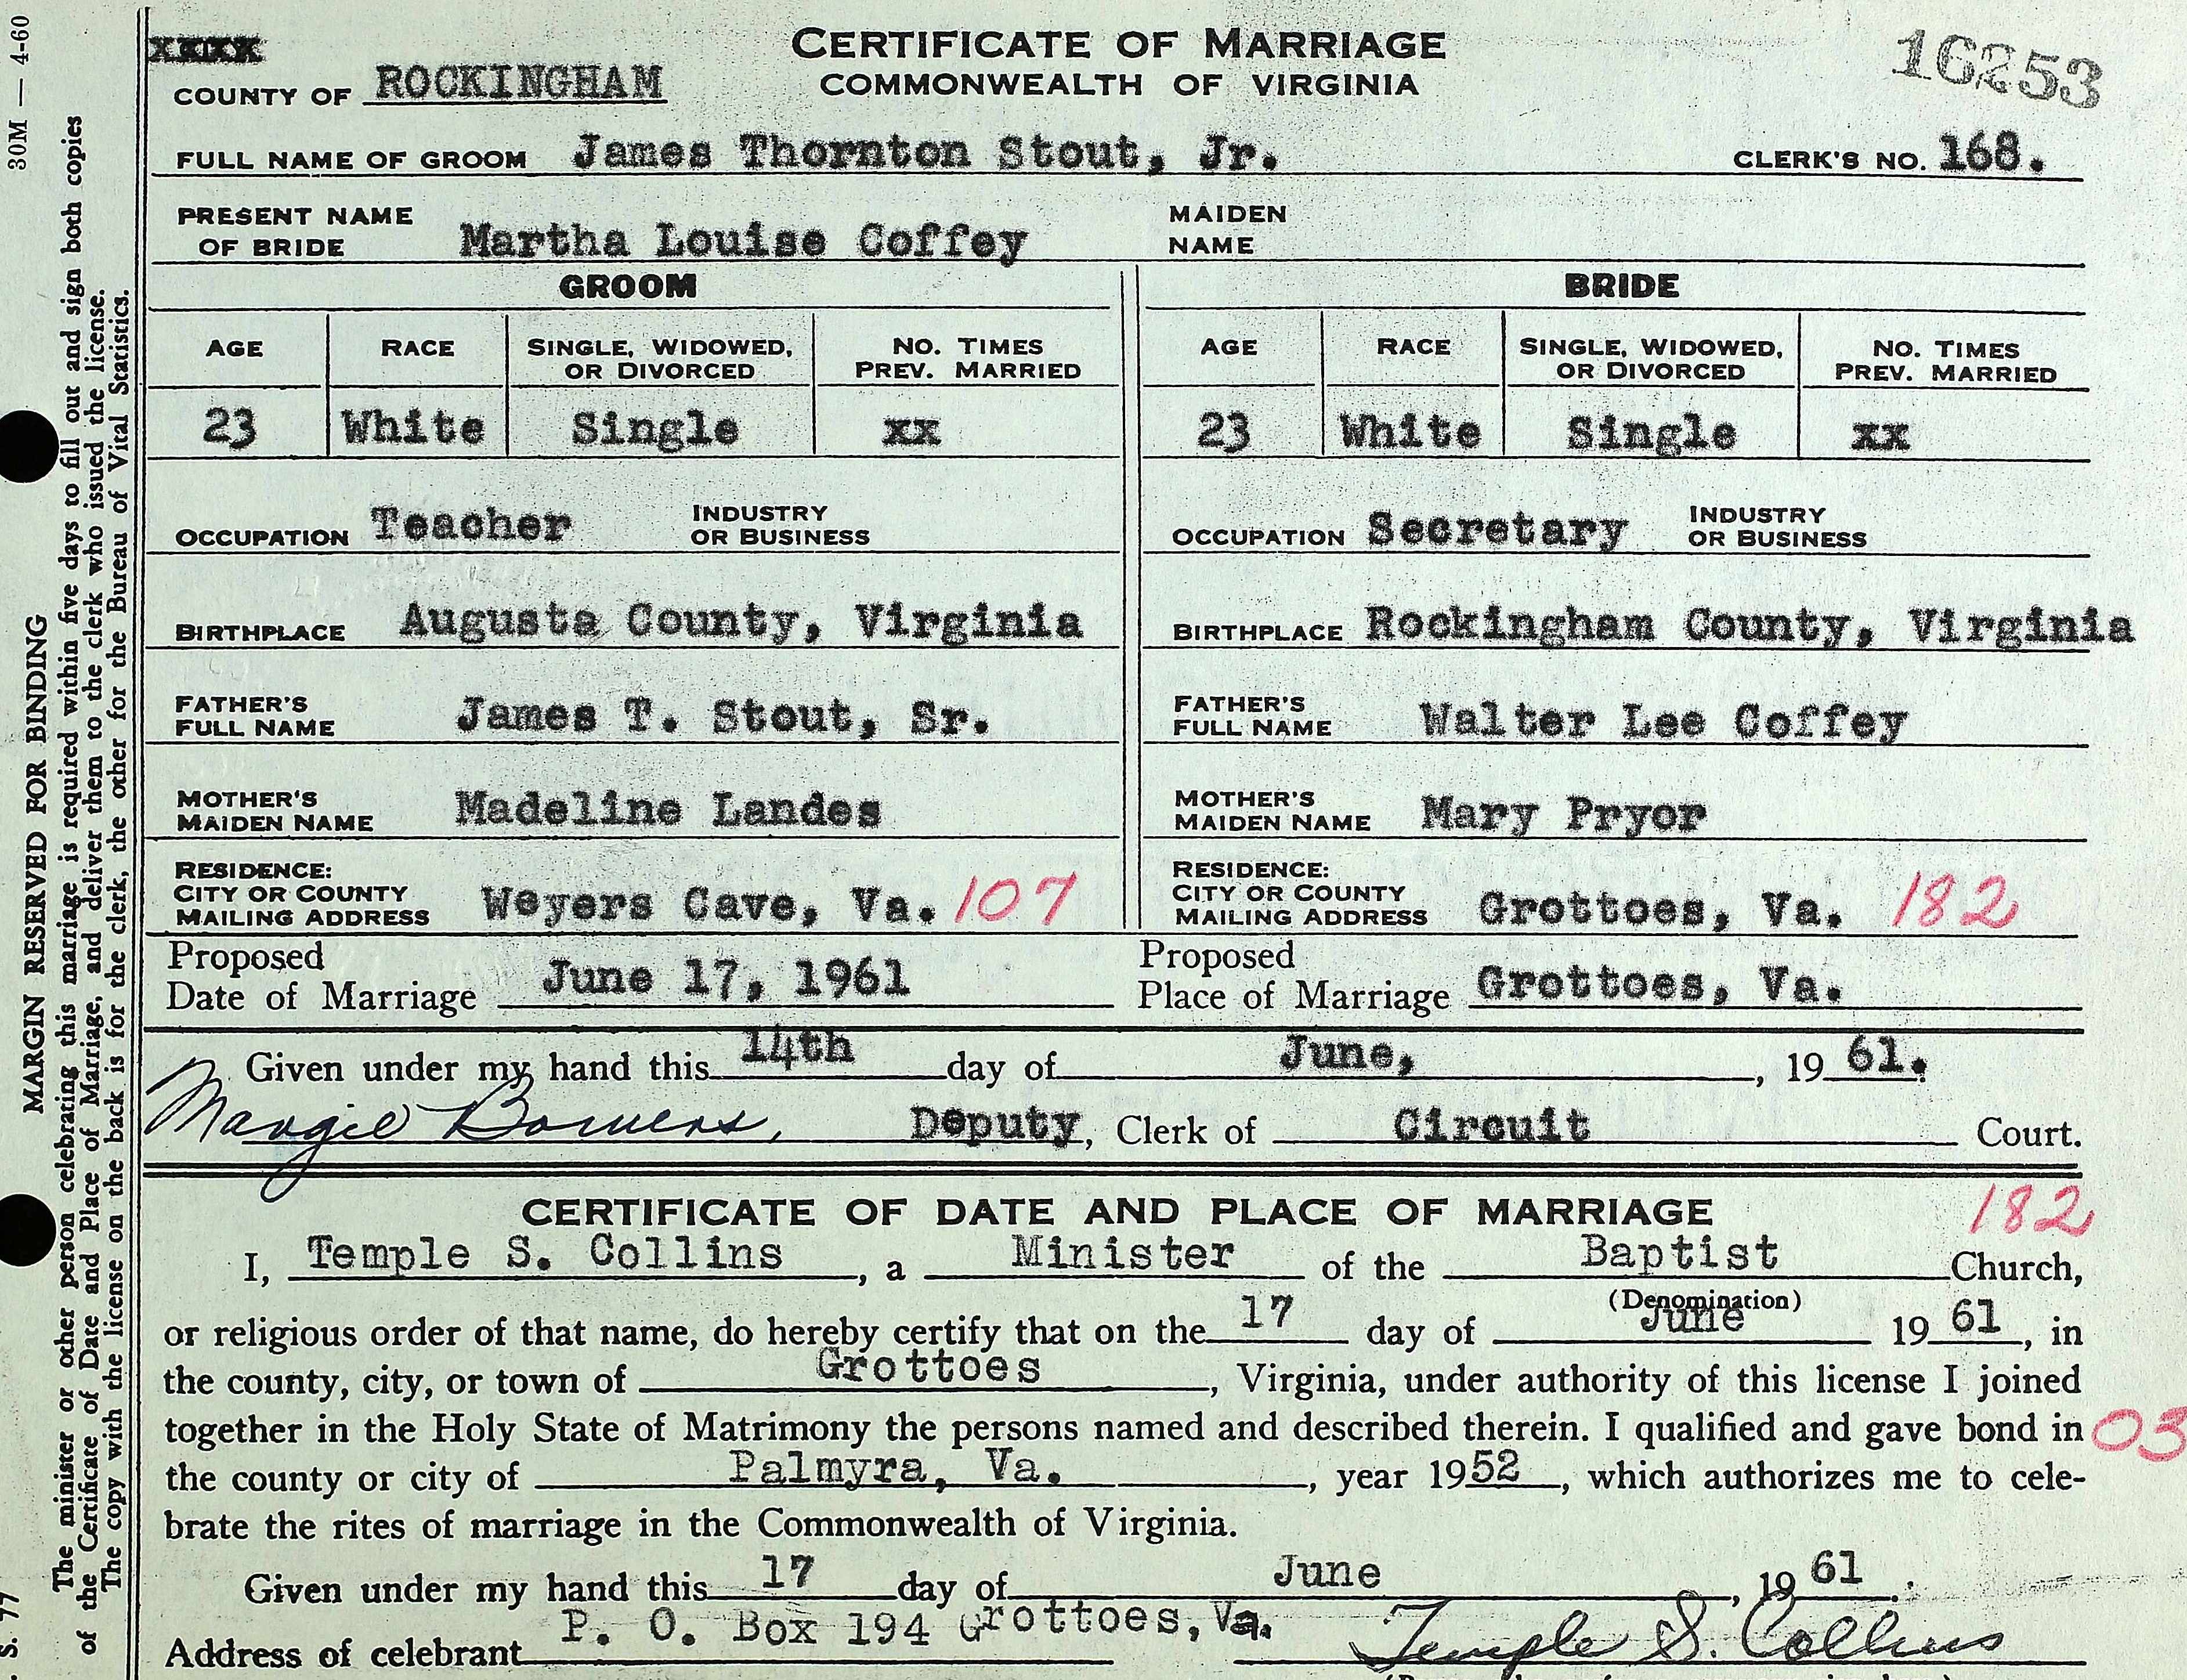 30M — 4-60
MARGIN RESERVED FOR BINDING
The minister or other person celebrating this marriage is required within five days to fill out and sign both copies
of the Certificate of Date and Place of Marriage, and deliver them to the clerk who issued the license.
The copy with the license on the back is for the clerk, the other for the Bureau of Vital Statistics.
S. 77
CERTIFICATE OF MARRIAGE
COMMONWEALTH OF VIRGINIA
16253
COUNTY OF ROCKINGHAM
FULL NAME OF GROOM James Thornton Stout, Jr. CLERK'S NO. 168.
PRESENT NAME MAIDEN
OF BRIDE Martha Louise Coffey NAME
GROOM BRIDE
AGE RACE SINGLE, WIDOWED, OR DIVORCED NO. TIMES PREV. MARRIED AGE RACE SINGLE, WIDOWED, OR DIVORCED NO. TIMES PREV. MARRIED
23 White Single xx 23 White Single xx
OCCUPATION Teacher INDUSTRY OR BUSINESS OCCUPATION Secretary INDUSTRY OR BUSINESS
BIRTHPLACE Augusta County, Virginia BIRTHPLACE Rockingham County, Virginia
FATHER'S FULL NAME James T. Stout, Sr. FATHER'S FULL NAME Walter Lee Coffey
MOTHER'S MAIDEN NAME Madeline Landes MOTHER'S MAIDEN NAME Mary Pryor
RESIDENCE: CITY OR COUNTY MAILING ADDRESS Weyers Cave, Va. 107 RESIDENCE: CITY OR COUNTY MAILING ADDRESS Grottoes, Va. 182
Proposed Date of Marriage June 17, 1961 Proposed Place of Marriage Grottoes, Va.
Given under my hand this 14th day of June, , 19 61.
Margie Bowers, Deputy, Clerk of Circuit Court.
CERTIFICATE OF DATE AND PLACE OF MARRIAGE 182
I, Temple S. Collins, a Minister of the Baptist Church,
(Denomination)
or religious order of that name, do hereby certify that on the 17 day of June 19 61, in
the county, city, or town of Grottoes, Virginia, under authority of this license I joined
together in the Holy State of Matrimony the persons named and described therein. I qualified and gave bond in 03
the county or city of Palmyra, Va., year 1952, which authorizes me to cele-
brate the rites of marriage in the Commonwealth of Virginia.
Given under my hand this 17 day of June, 19 61.
Address of celebrant P. O. Box 194 Grottoes, Va. Temple S. Collins